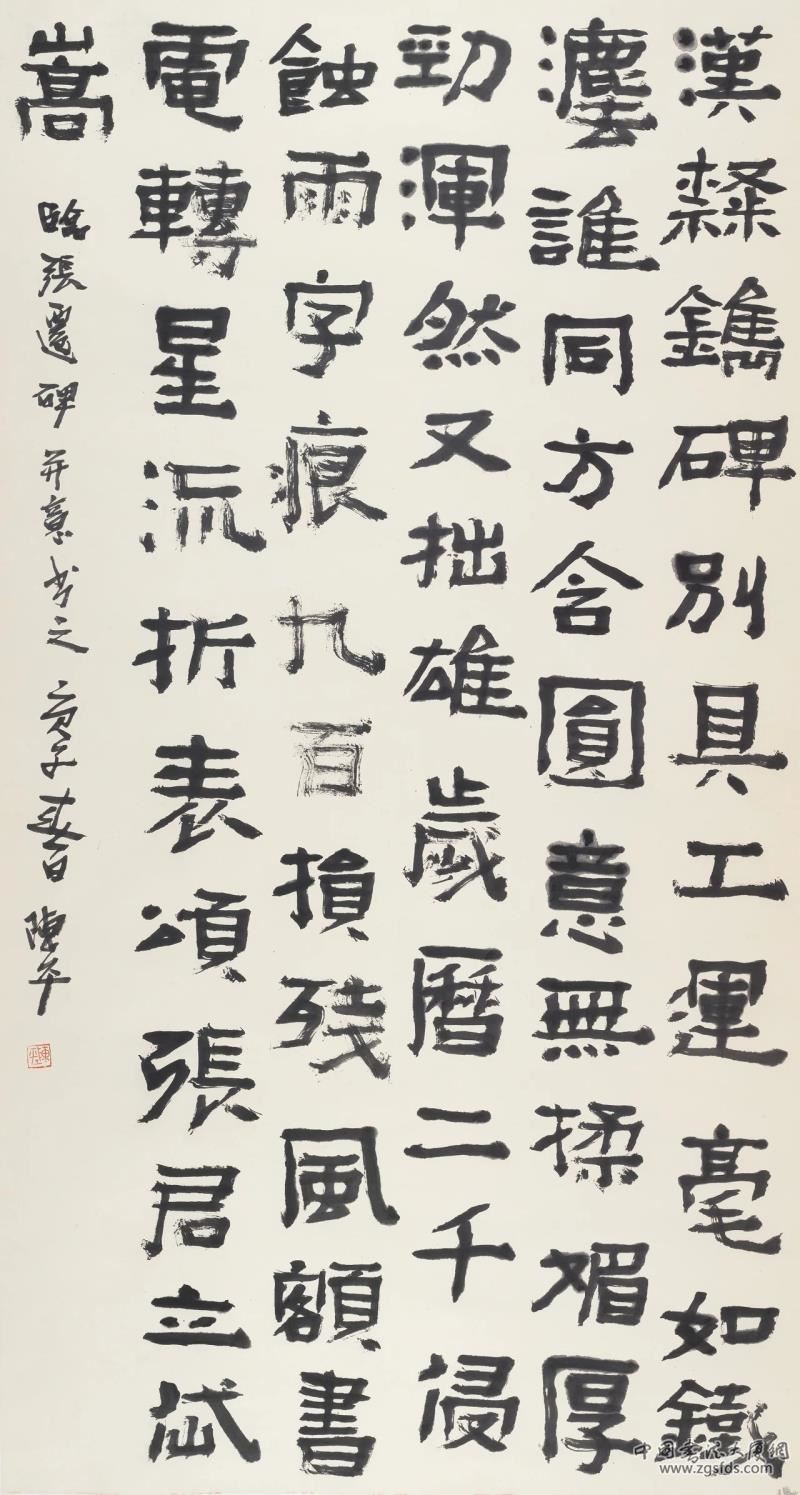 漢隸鐫碑別具工運毫如鐵
灋誰同方含圓意無揉媚厚
勁渾然又拙雄歲曆二千侵
蝕雨字痕九百損残風額書
電轉星流折表頌張君立岱
嵩
臨張遷碑并意书之 庚子春日 陳平
www.zgsfds.com